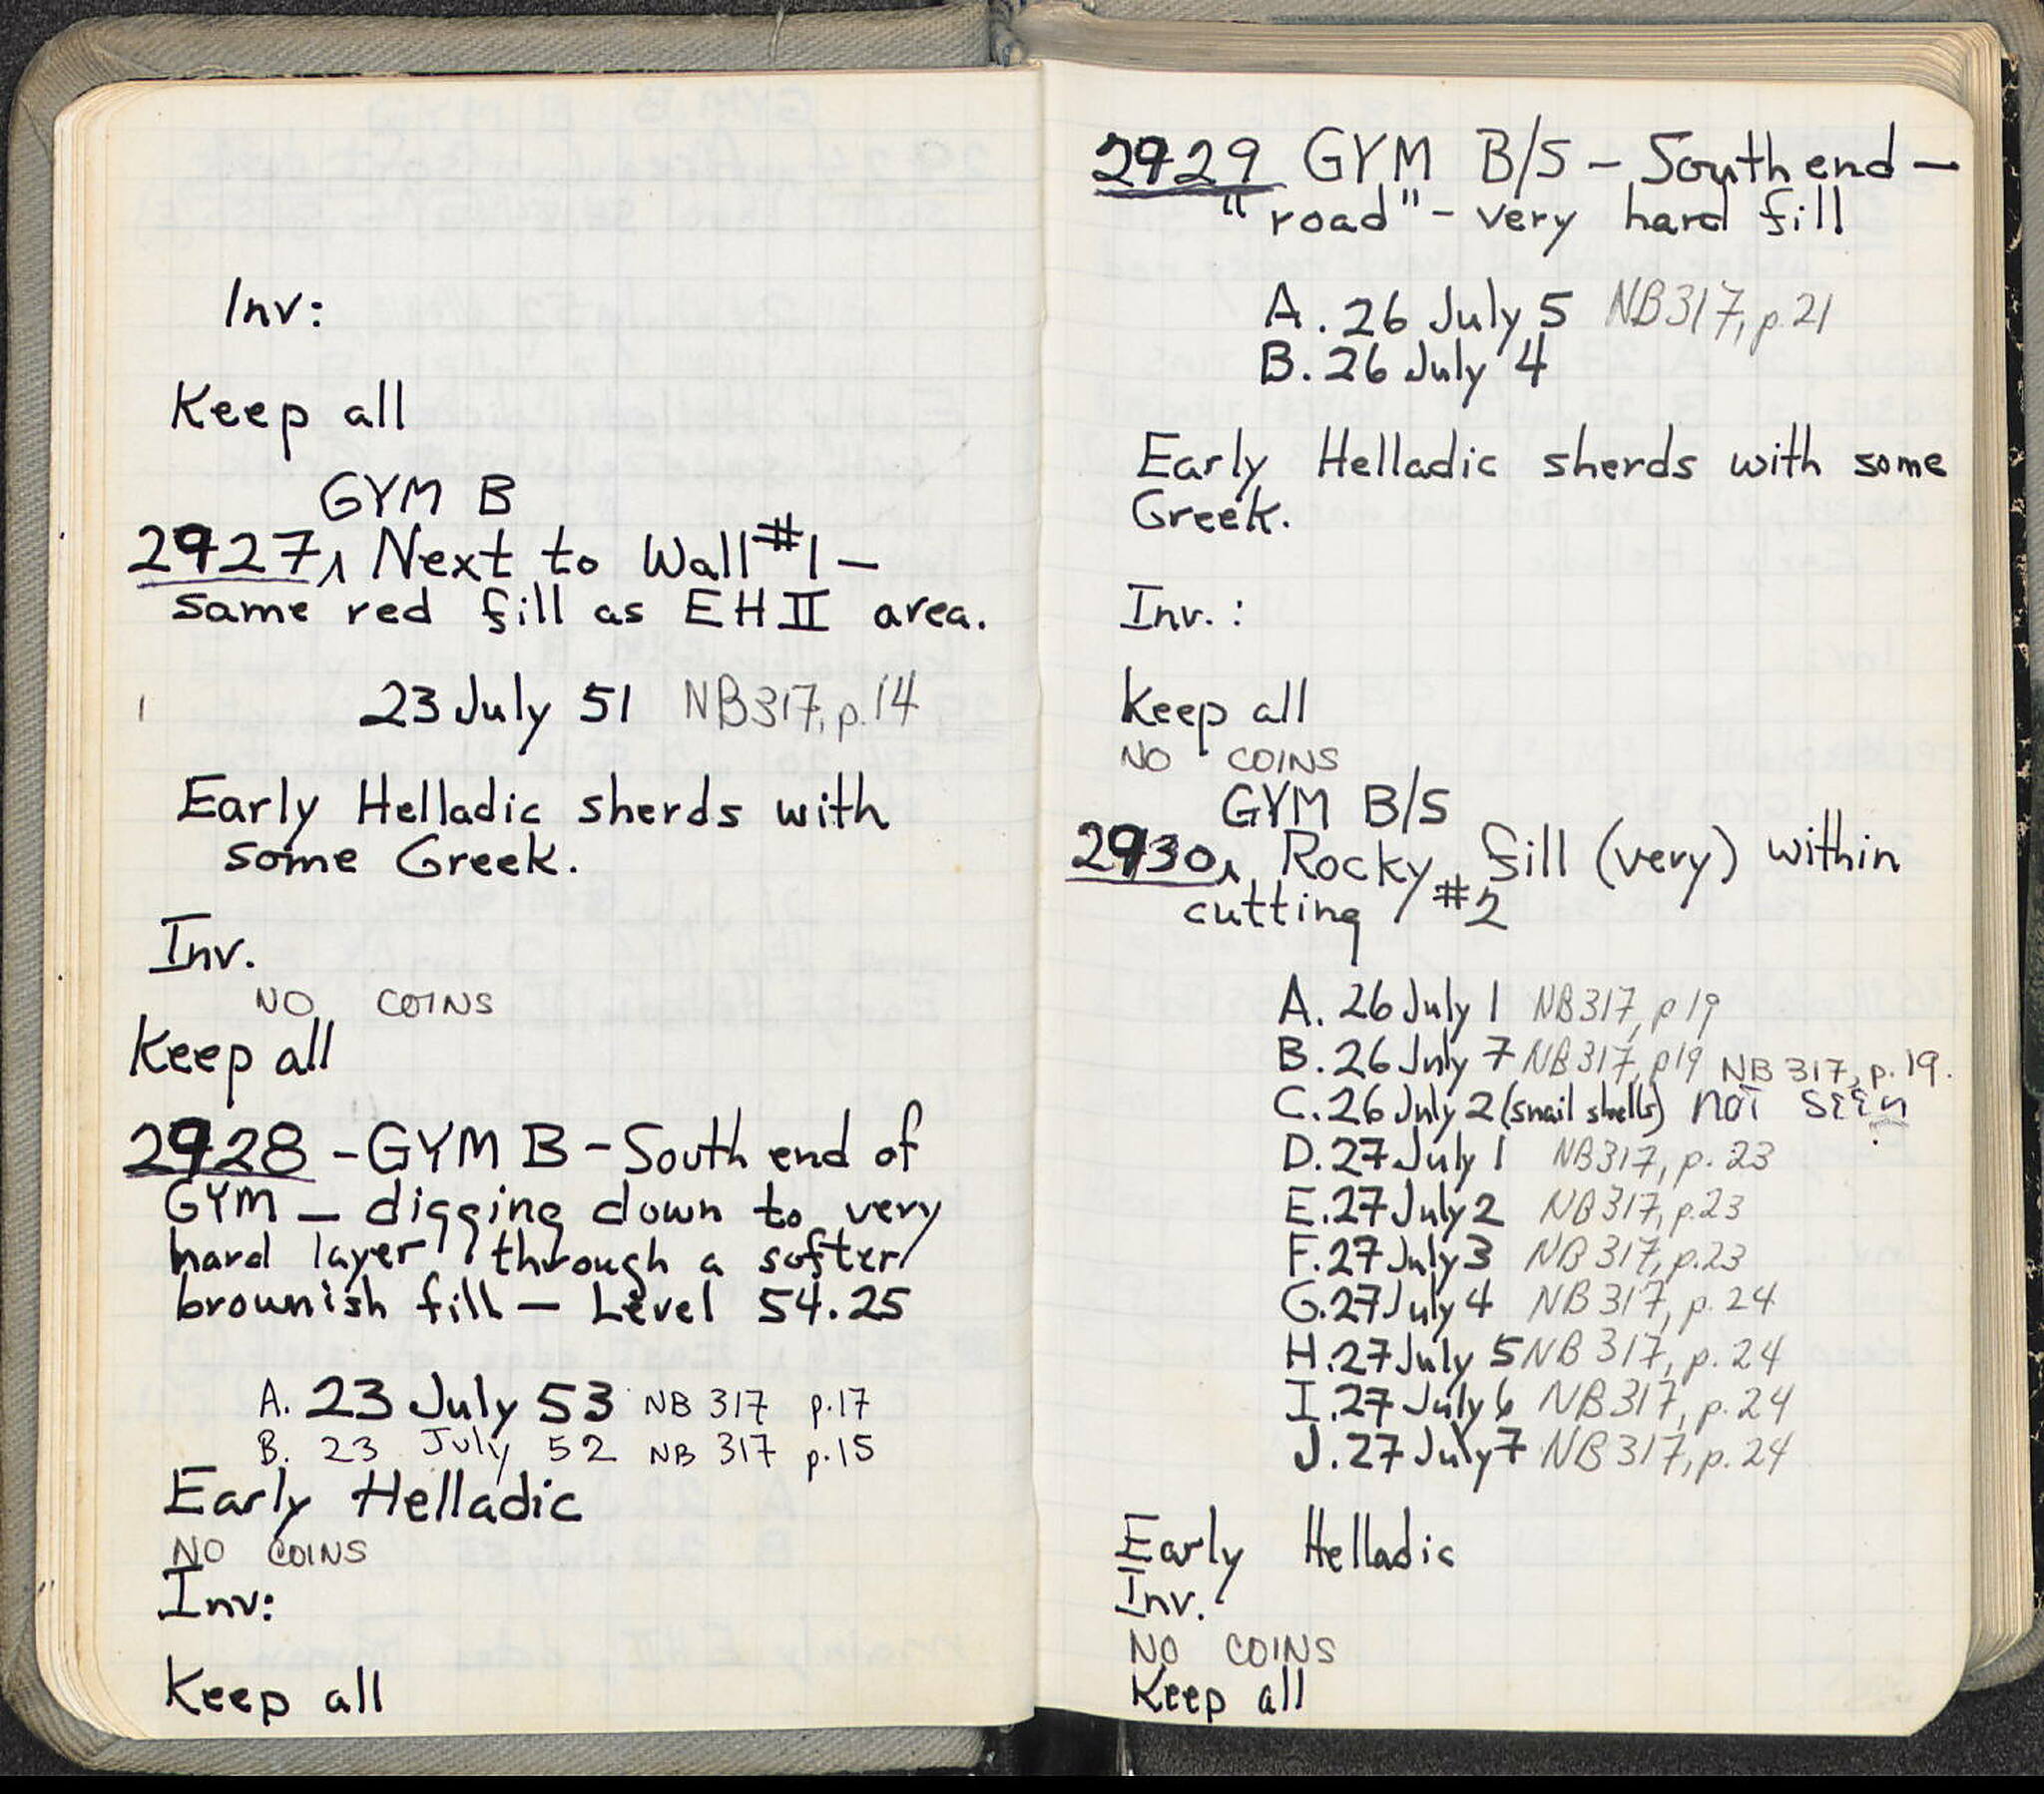 Inv:
Keep all
GYM B
2927, Next to Wall #1 –
same red fill as EH II area.
23 July 51 NB317, p.14
Early Helladic sherds with
some Greek.
Inv.
NO COINS
Keep all
2928 - GYM B - South end of
GYM — digging down to very
hard layer through a softer
brownish fill — Level 54.25
A. 23 July 53 NB 317 p.17
B. 23 July 52 NB 317 p.15
Early Helladic
NO COINS
Inv:
Keep all
2929 GYM B/S – South end –
"road" - very hard fill
A. 26 July 5 NB317, p.21
B. 26 July 4
Early Helladic sherds with some
Greek.
Inv. :
Keep all
NO COINS
GYM B/S
2930, Rocky fill (very) within
cutting #2
A. 26 July 1 NB317, p19
B. 26 July 7 NB317, p19 NB 317, p. 19.
C. 26 July 2 (snail shells) not seen
D. 27 July 1 NB317, p. 23
E. 27 July 2 NB317, p.23
F. 27 July 3 NB317, p.23
G. 27 July 4 NB317, p. 24
H. 27 July 5 NB317, p. 24
I. 27 July 6 NB317, p. 24
J. 27 July 7 NB317, p. 24
Early Helladic
Inv.
NO COINS
Keep all